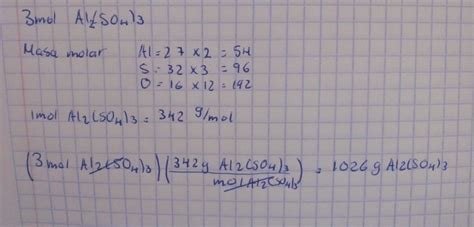 3mol Al2(SO4)3
Masa molar Al = 27 x 2 = 54
S = 32 x 3 = 96
O = 16 x 12 = 192
1mol Al2(SO4)3 = 342 g/mol
(3mol Al2(SO4)3) (342g Al2(SO4)3 / mol Al2(SO4)3) = 1026g Al2(SO4)3